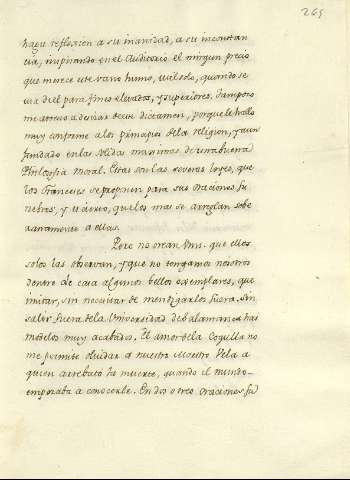 265
haga reflexion a su inanidad, a su inconstan
cia, inspirando en el Auditorio el ningun precio
que merece este vano humo, util solo, quando se
usa de el para fines elevados, y superiores. Tampoco
me atrevo a desviar de este dictamen, porque le hallo
muy conforme a los principios de la religion, y aun
fundado en las solidas maximas de una buena
Philosofia Moral. Estas son las severas leyes, que
los Franceses se proponen para sus Oraciones fu
nebres, y es cierto, que los mas se arreglan sobe
ranamente a ellas.
Pero no crean Vms. que ellos
solos las observan, y que no tengamos nosotros
dentro de casa algunos bellos exemplares, que
imitar, sin necesitar de mendigarlos fuera. Sin
salir fuera de la Universidad de Salamanca has
modelos muy acabados. El amor de la Cogulla no
me permite olvidar a nuestro Maestro Vela a
quien arrebató la muerte, quando el mundo
empezaba a conocerle. En dos o tres Oraciones fu